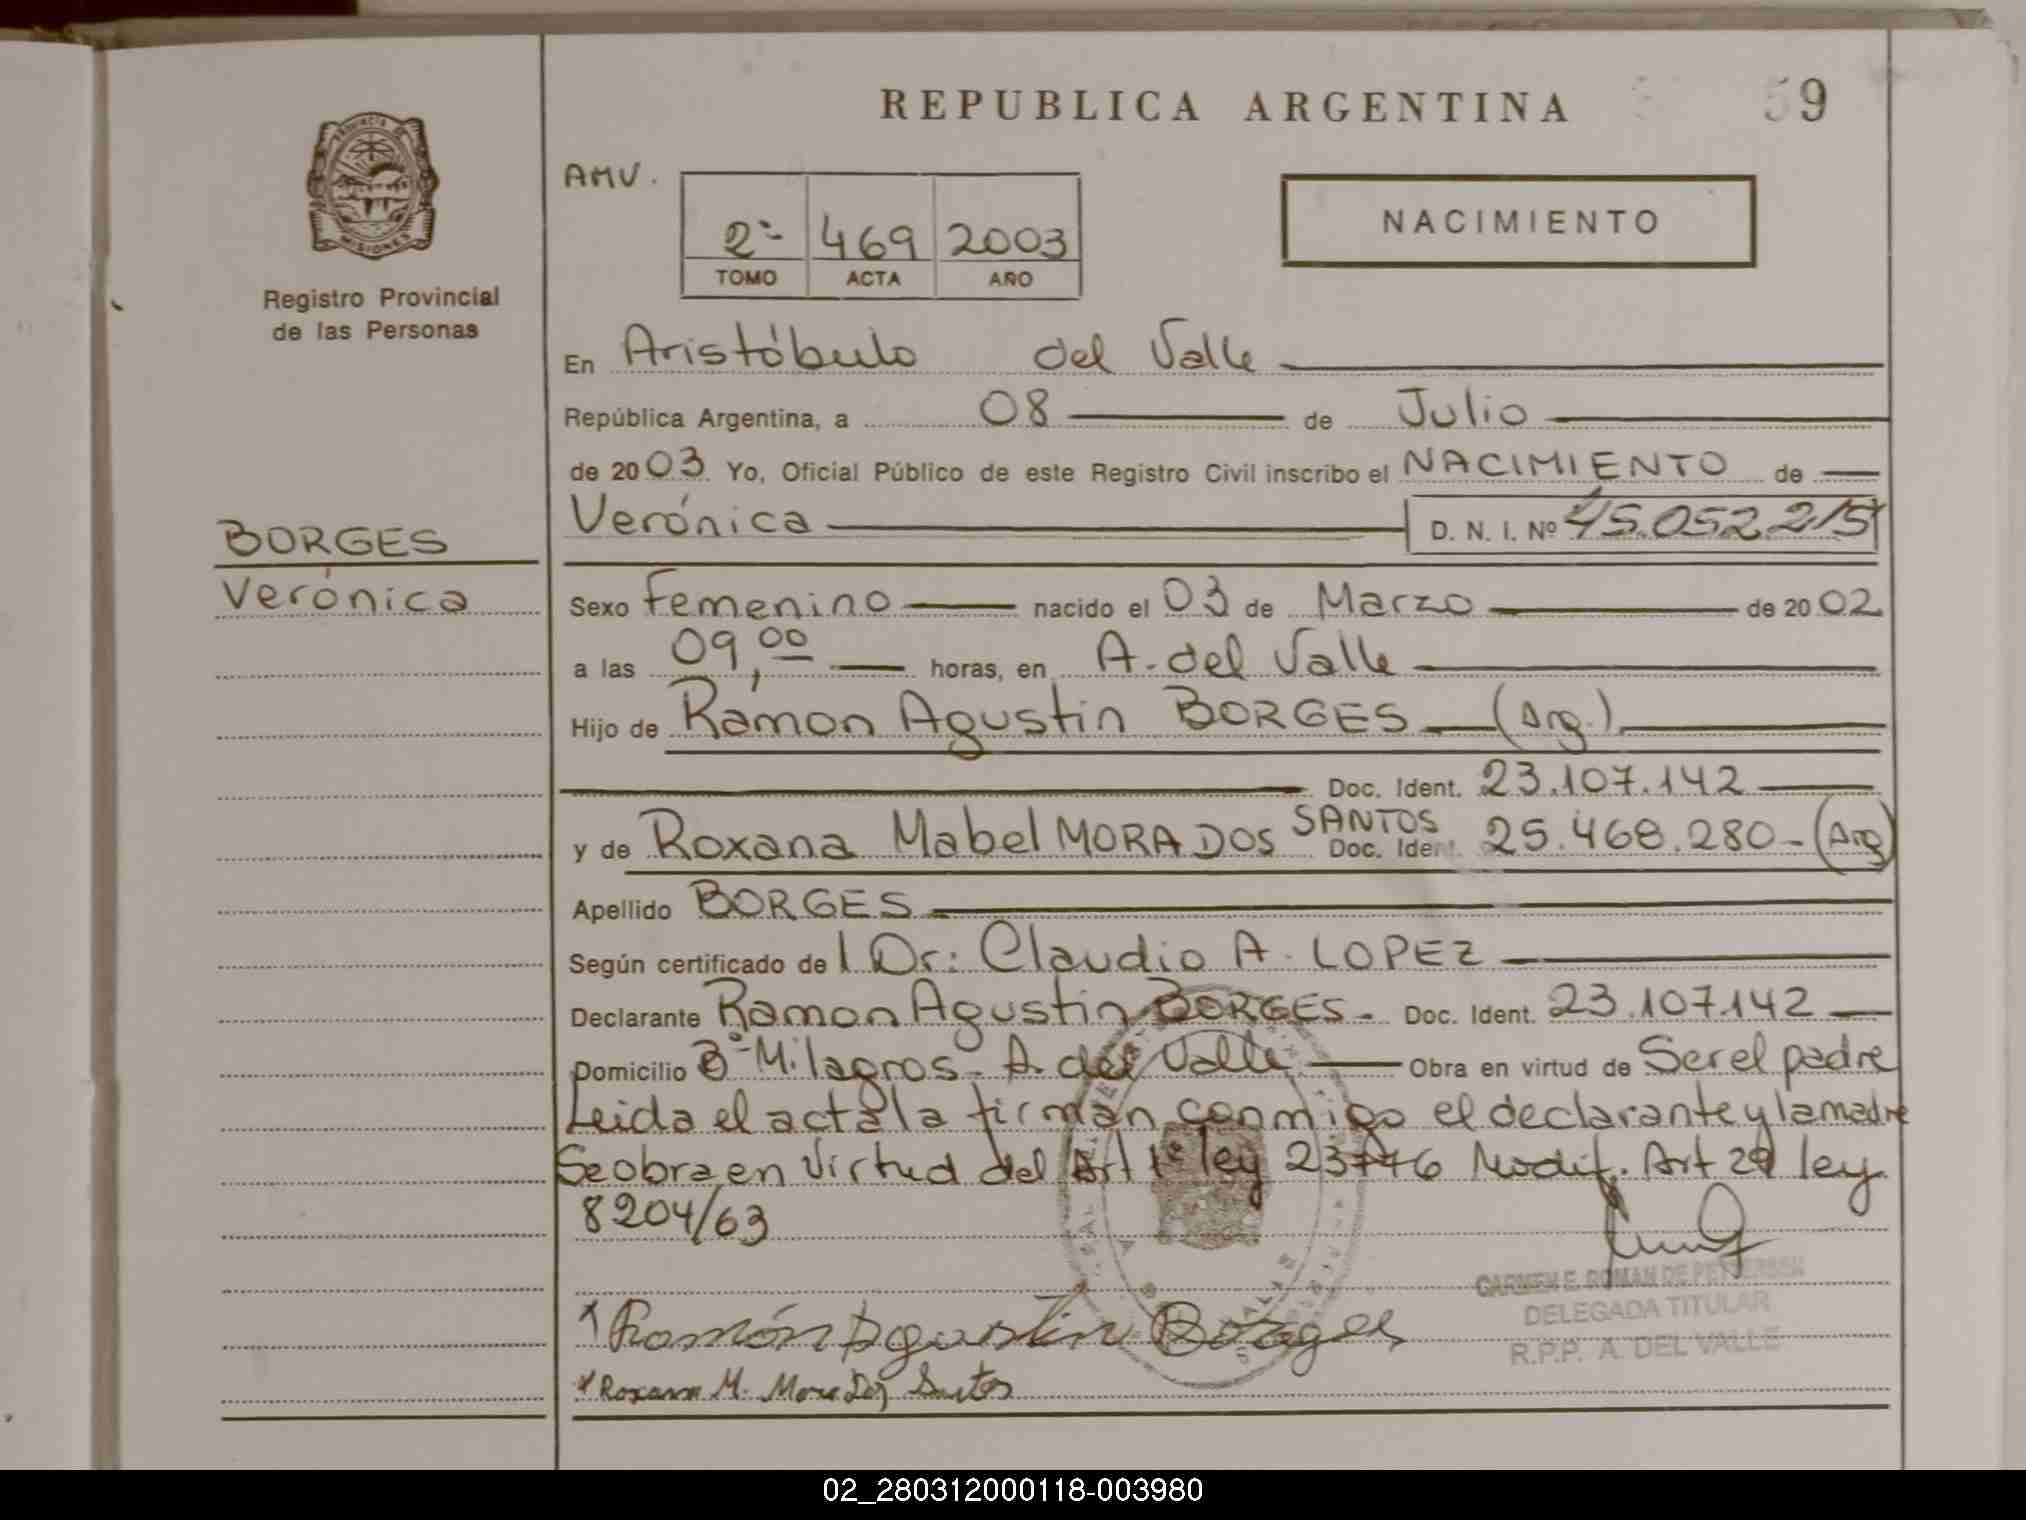 REPUBLICA ARGENTINA
59
PROVINCIA DE
MISIONES
Registro Provincial
de las Personas
AMV.
2º 469 2003
TOMO ACTA AÑO
NACIMIENTO
En Aristóbulo del Valle
República Argentina, a 08 de Julio
de 2003 Yo, Oficial Público de este Registro Civil inscribo el NACIMIENTO de
Verónica D. N. I. Nº 45.052.215
BORGES
Verónica
Sexo Femenino nacido el 03 de Marzo de 2002
a las 09,00 horas, en A. del Valle
Hijo de Ramón Agustín BORGES (Arg.)
Doc. Ident. 23.107.142
y de Roxana Mabel MORA DOS SANTOS Doc. Ident. 25.468.280-(Arg)
Apellido BORGES
Según certificado de l Dr: Claudio A. LOPEZ
Declarante Ramon Agustin BORGES- Doc. Ident. 23.107.142
Domicilio Bº Milagros- A. del Valle Obra en virtud de Ser el padre
Leida el acta la firman conmigo el declarante y la madre
Se obra en virtud del Art 1º ley 23776 Modif. Art 29 ley
8204/63
CARMEN E. ROMAN DE
DELEGADA TITULAR
R.P.P. A. DEL VALLE
Ramón Agustin Borges
Roxana M. Mora Dos Santos
02_280312000118-003980